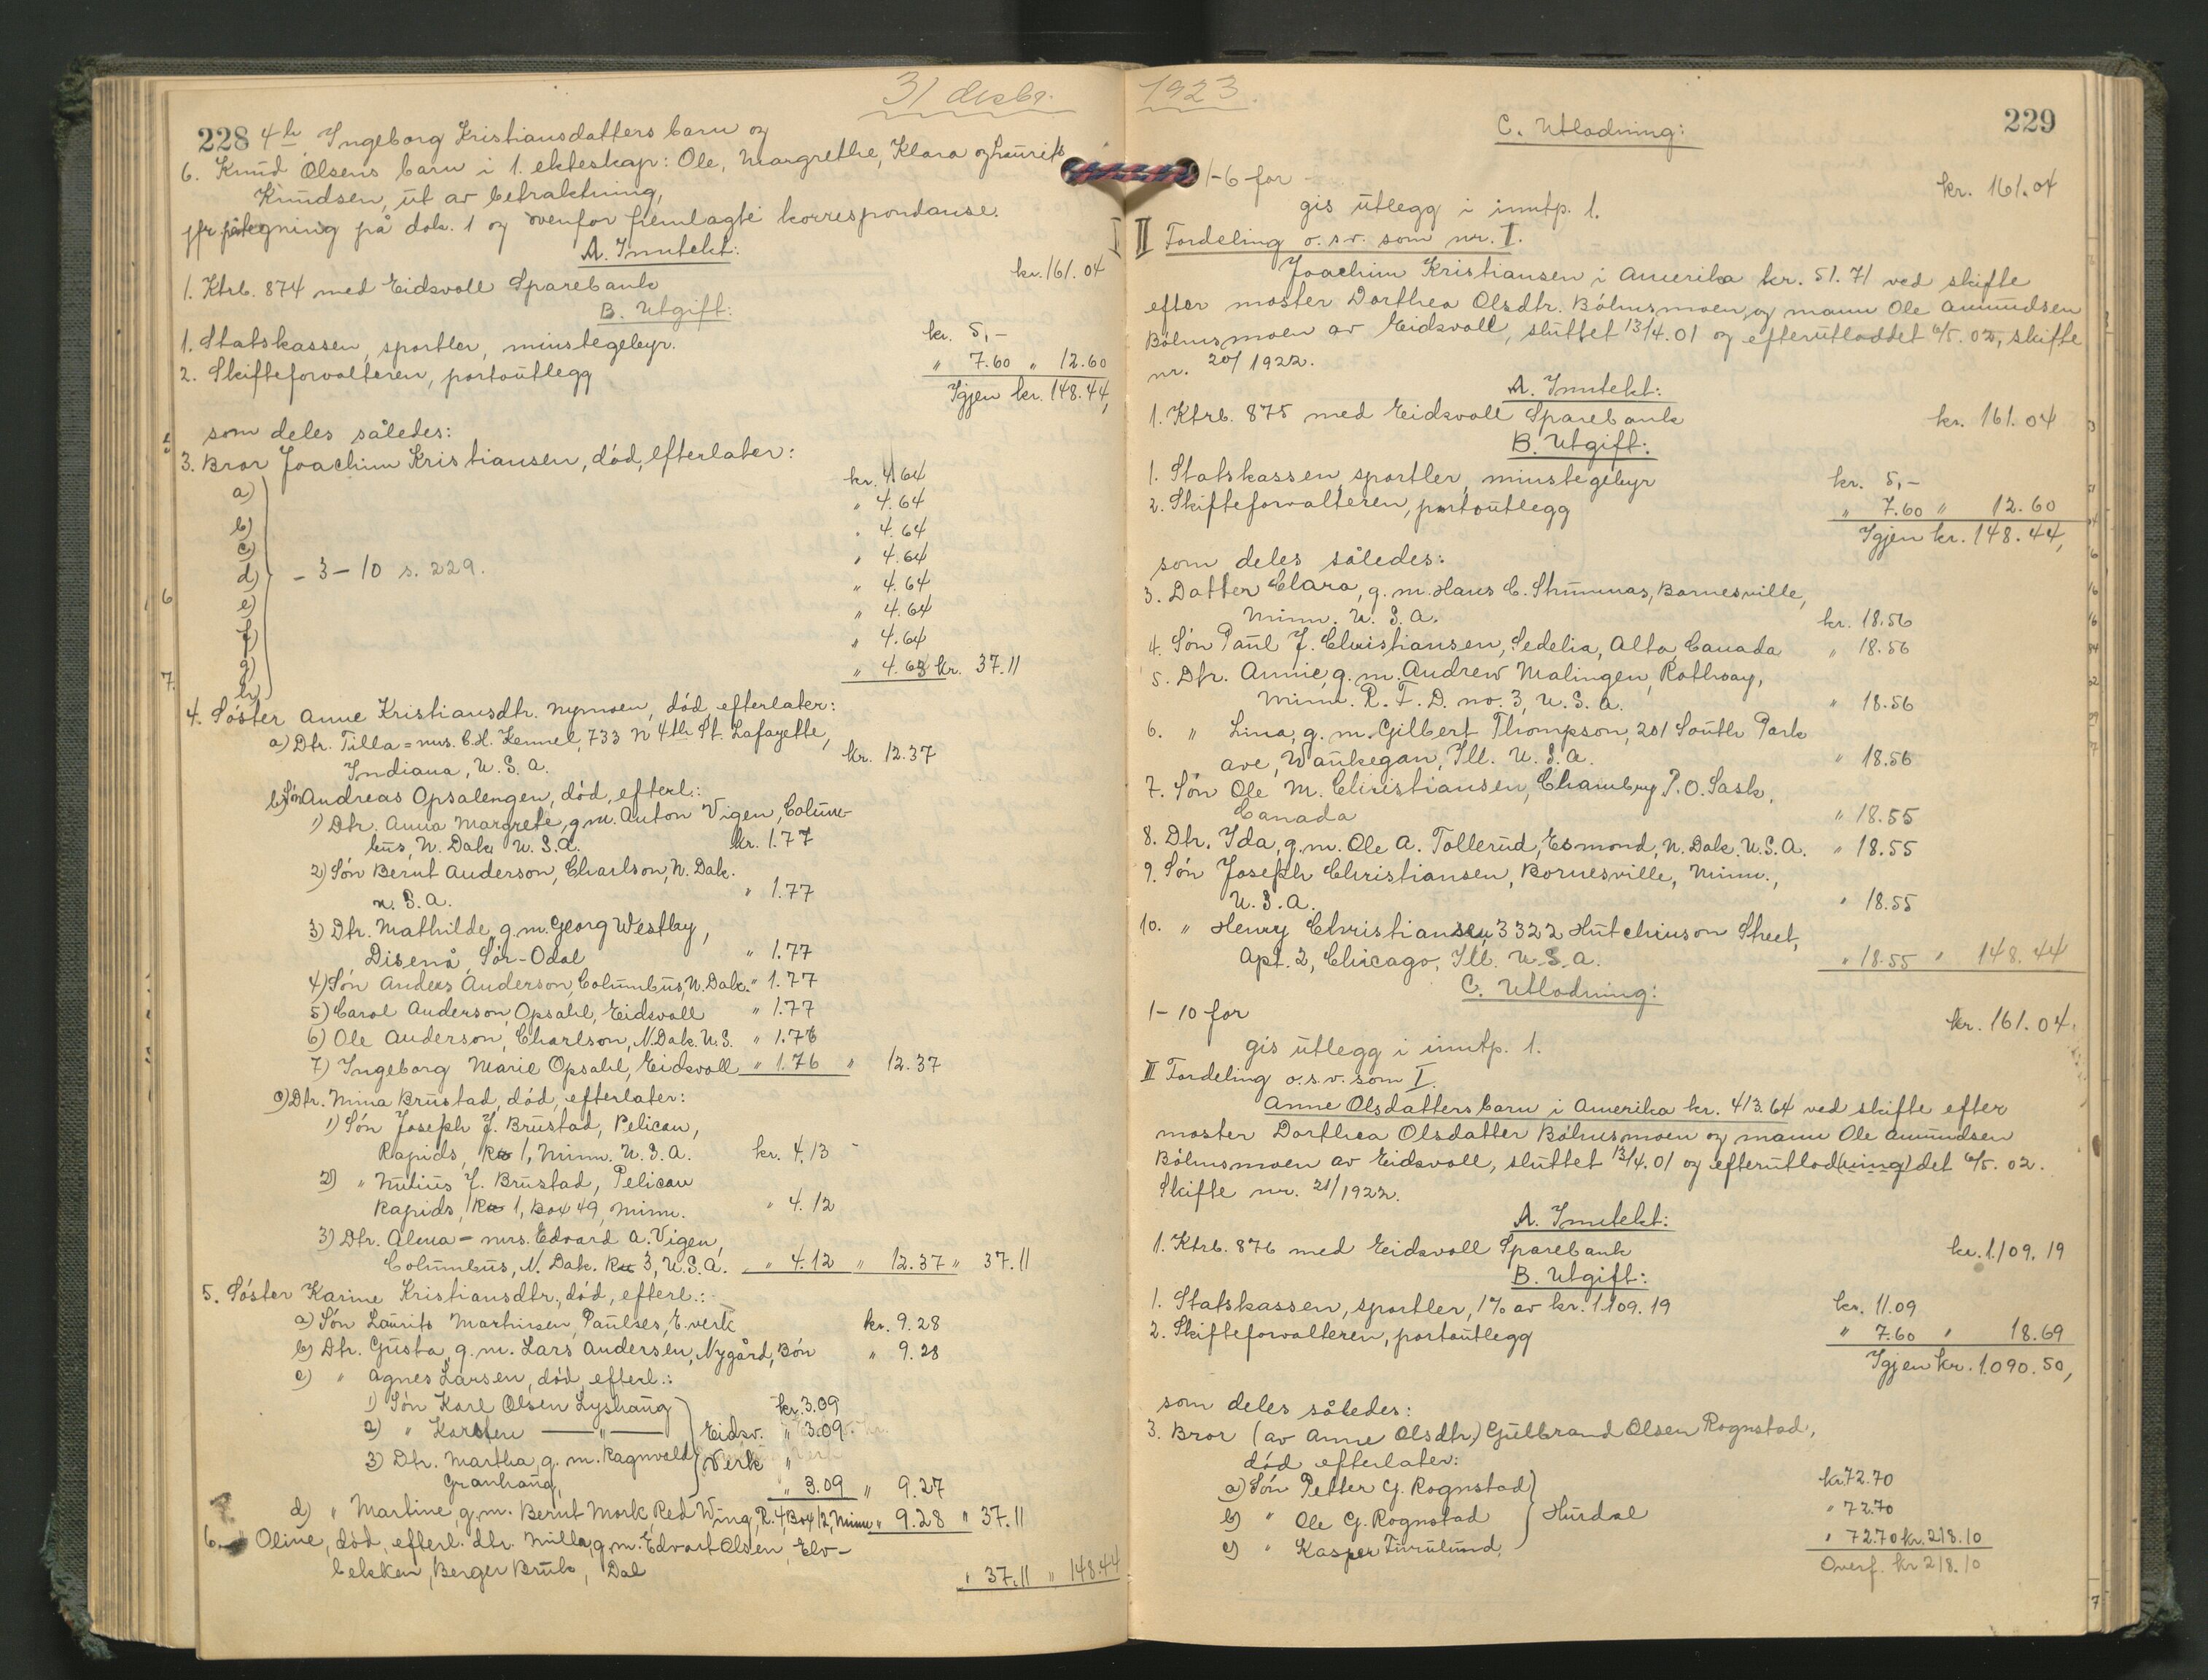 31 desbr.
228 4de Ingeborg Kristiansdatters barn og
6. Knud Olsens barn i 1. ekteskap: Ole, Margrethe, Klara og Laurits
Knudsen, ut av betraktning,
jfr påtegning på dok. 1 og ovenfor fremlagte korrespondanse.
A. Inntekt:
1. Ktrb. 874 med Eidsvoll Sparebank kr. 161.04
B. Utgift:
1. Statskassen, sportler, minstegebyr. kr. 5,-
2. Skifteforvalteren, portoutlegg " 7.60 " 12.60
Igjen kr. 148.44,
som deles således:
3. Bror Joachim Kristiansen, död, efterlater:
a) kr. 4.64
b) " 4.64
c) " 4.64
d) - 3 - 10 s. 229. " 4.64
e) " 4.64
f) " 4.64
g) " 4.64
h) " 4.63 kr. 37.11
4. Söster Anne Kristiansdtr. Nymoen, död, efterlater:
a) Dtr. Tilla = mrs. C. H. Kennel, 733 N 4th St. Lafayette,
Indiana, U.S.A. kr. 12.37
b) Sön Andreas Opsalengen, död, efterl.:
1) Dtr. Anna Margrete, g.m. Anton Vigen, Colum-
bus, N. Dak. U.S.A. kr. 1.77
2) Sön Bernt Anderson, Charlson, N. Dak.
U.S.A. " 1.77
3) Dtr. Mathilde, g.m. Georg Westby,
Disenå, Sör-Odal " 1.77
4) Sön Anders Anderson, Columbus, N. Dak. " 1.77
5) Carol Anderson Opsahl, Eidsvoll " 1.77
6) Ole Anderson, Charlson, N. Dak. U.S. " 1.76
7) Ingeborg Marie Opsahl, Eidsvoll " 1.76 " 12.37
c) Dtr. Mina Brustad, död, efterlater:
1) Sön Joseph J. Brustad, Pelican,
Rapids, 1, Minn. U.S.A. kr. 4.13
2) " Julius J. Brustad, Pelican
Rapids, 1, Box 49, Minn. " 4.12
3) Dtr. Alma = mrs. Edvard A. Vigen,
Columbus, N. Dak. 3, U.S.A. " 4.12 " 12.37 " 37.11
5. Söster Karine Kristiansdtr., död, efterl.:
a) Sön Laurits Martinsen, Paulses, E. verk kr. 9.28
b) Dtr. Gusta, g.m. Lars Andersen, Nygård, Bön " 9.28
c) " Agnes Larsen, död, efterl.:
1) Sön Karl Olsen Lyshaug kr. 3.09
2) " Karsten —"— Eidsv. " 3.09
3) Dtr. Martha, g.m. Ragnvald Verk "
Granhaug, " 3.09 " 9.27
d) " Martine, g.m. Bernt Mork, Red Wing, R. 4, Box 12, Minn " 9.28 " 37.11
6. Oline, död, efterl. dtr. Milla, g.m. Edvart Olsen, Elv-
bekken, Berger Bruk, Dal " 37.11 " 148.44
1923.
229
C. Utlodning:
1-6 for kr. 161.04
gis utlegg i inntp. 1.
II Fordeling o.s.v. som nr. I.
Joachim Kristiansen i Amerika kr. 51.71 ved skifte
efter moster Dorthea Olsdtr. Bölnsmoen og mann Ole Amundsen
Bölnsmoen av Eidsvoll, sluttet 13/4.01 og efterutloddet 6/5.02, skifte
nr. 20/1922.
A. Inntekt:
1. Ktrb. 875 med Eidsvoll Sparebank kr. 161.04
B. Utgift:
1. Statskassen, sportler, minstegebyr kr. 5,-
2. Skifteforvalteren, portoutlegg " 7.60 " 12.60
Igjen kr. 148.44,
som deles således:
3. Datter Clara, g.m. Hans C. Barnesville,
Minn. U.S.A. kr. 18.56
4. Sön Paul J. Christiansen, Sedelia, Alta Canada " 18.56
5. Dtr. Annie, g.m. Andrew Malingen, Rothsay,
Minn. R.F.D. no. 3, U.S.A. " 18.56
6. " Lina, g.m. Gilbert Thompson, 201 South Park
ave, Waukegan, Ill. U.S.A. " 18.56
7. Sön Ole M. Christiansen, P.O. Sask.
Canada " 18.55
8. Dtr. Ida, g.m. Ole A. Tollerud, Esmond, N. Dak. U.S.A. " 18.55
9. Sön Joseph Christiansen, Bornesville, Minn.,
U.S.A. " 18.55
10. " Henry Christiansen, 3322 Hutchinson Street,
Apt. 2, Chicago, Ill. U.S.A. " 18.55 " 148.44
C. Utlodning:
1-10 for kr. 161.04.
gis utlegg i inntp. 1.
III Fordeling o.s.v. som I.
Anne Olsdatters barn i Amerika kr. 413.64 ved skifte efter
moster Dorthea Olsdatter Bölnsmoen og mann Ole Amundsen
Bölnsmoen av Eidsvoll, sluttet 13/4.01 og efterutlod(ning)det 6/5.02.
Skifte nr. 21/1922.
A. Inntekt:
1. Ktrb. 876 med Eidsvoll Sparebank kr. 1.109.19
B. Utgift:
1. Statskassen, sportler, 1% av kr. 1.109.19 kr. 11.09
2. Skifteforvalteren, portoutlegg " 7.60 " 18.69
Igjen kr. 1.090.50,
som deles således:
3. Bror (av Anne Olsdtr.) Gulbrand Olsen Rognstad,
död efterlater:
a) Sön Petter G. Rognstad kr. 72.70
b) " Ole G. Rognstad Hurdal " 72.70
c) " Kasper Turulund, " 72.70 kr. 218.10
Overf. kr 218.10